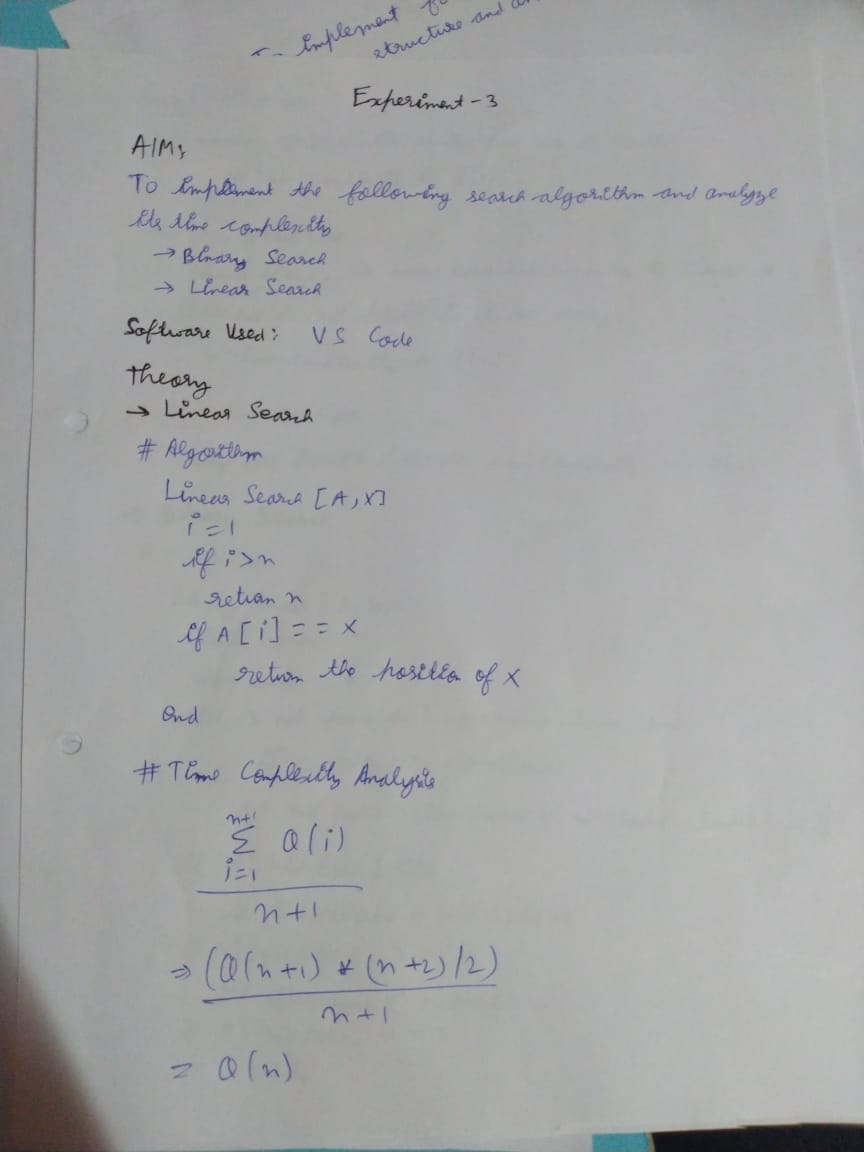 Implement
structure and
Experiment-3
AIM:
To implement the following search algorithm and analyze
its time complexity
→ Binary Search
→ Linear Search
Software Used: VS Code
Theory
→ Linear Search
# Algorithm
Linear Search [A,X]
i=1
if i>n
return n
if A[i]==X
return the position of X
end
# Time Complexity Analysis
n+1
Σ Θ(i)
i=1
n+1
⇒ (Θ(n+1) * (n+2)/2)
n+1
= Θ(n)